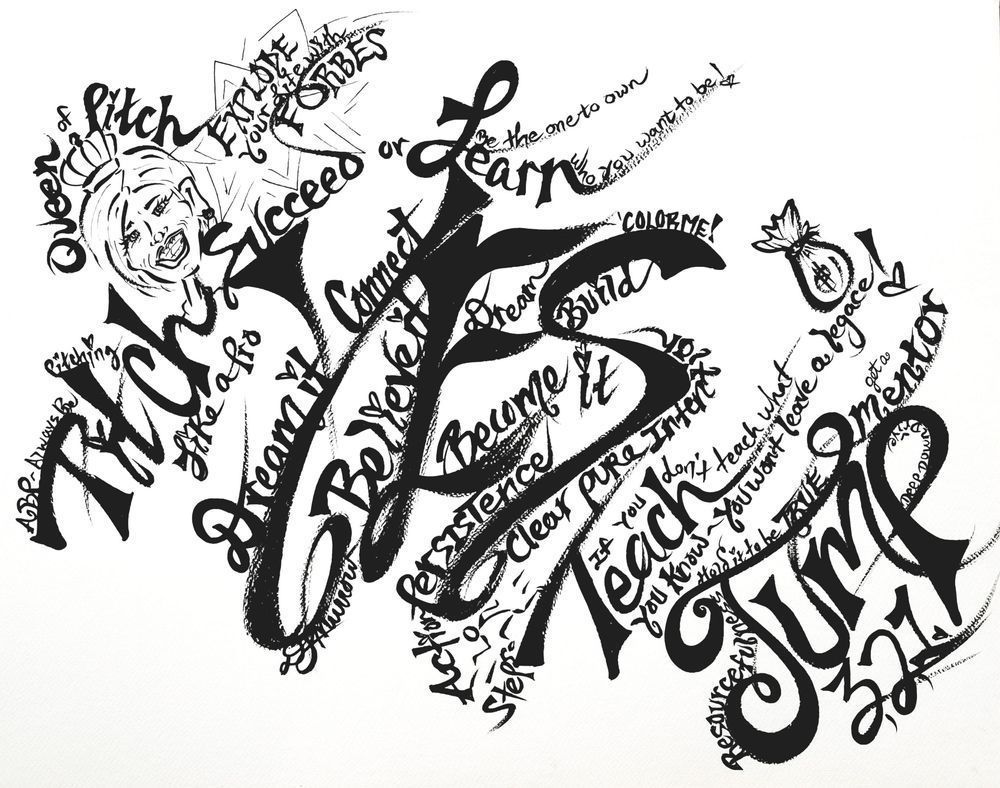 Queen of Pitch
EXPLODE
Your life with
FORBES
Succeed or Learn
Be the one to own
who you want to be!
Pitching
ABP-Always Be
Pitch
like a Pro
YES
COLOR ME!
Connect
Dream
Build
Dream it
Believe it
Become it
Persistence
Clear pure Intent
Act on
Steps
Teach
If You don't teach what
You Know~You won't leave a legace!
$
get a
mentor
TRUE
Jump
Dive
Deeper
Resourcefulness
321